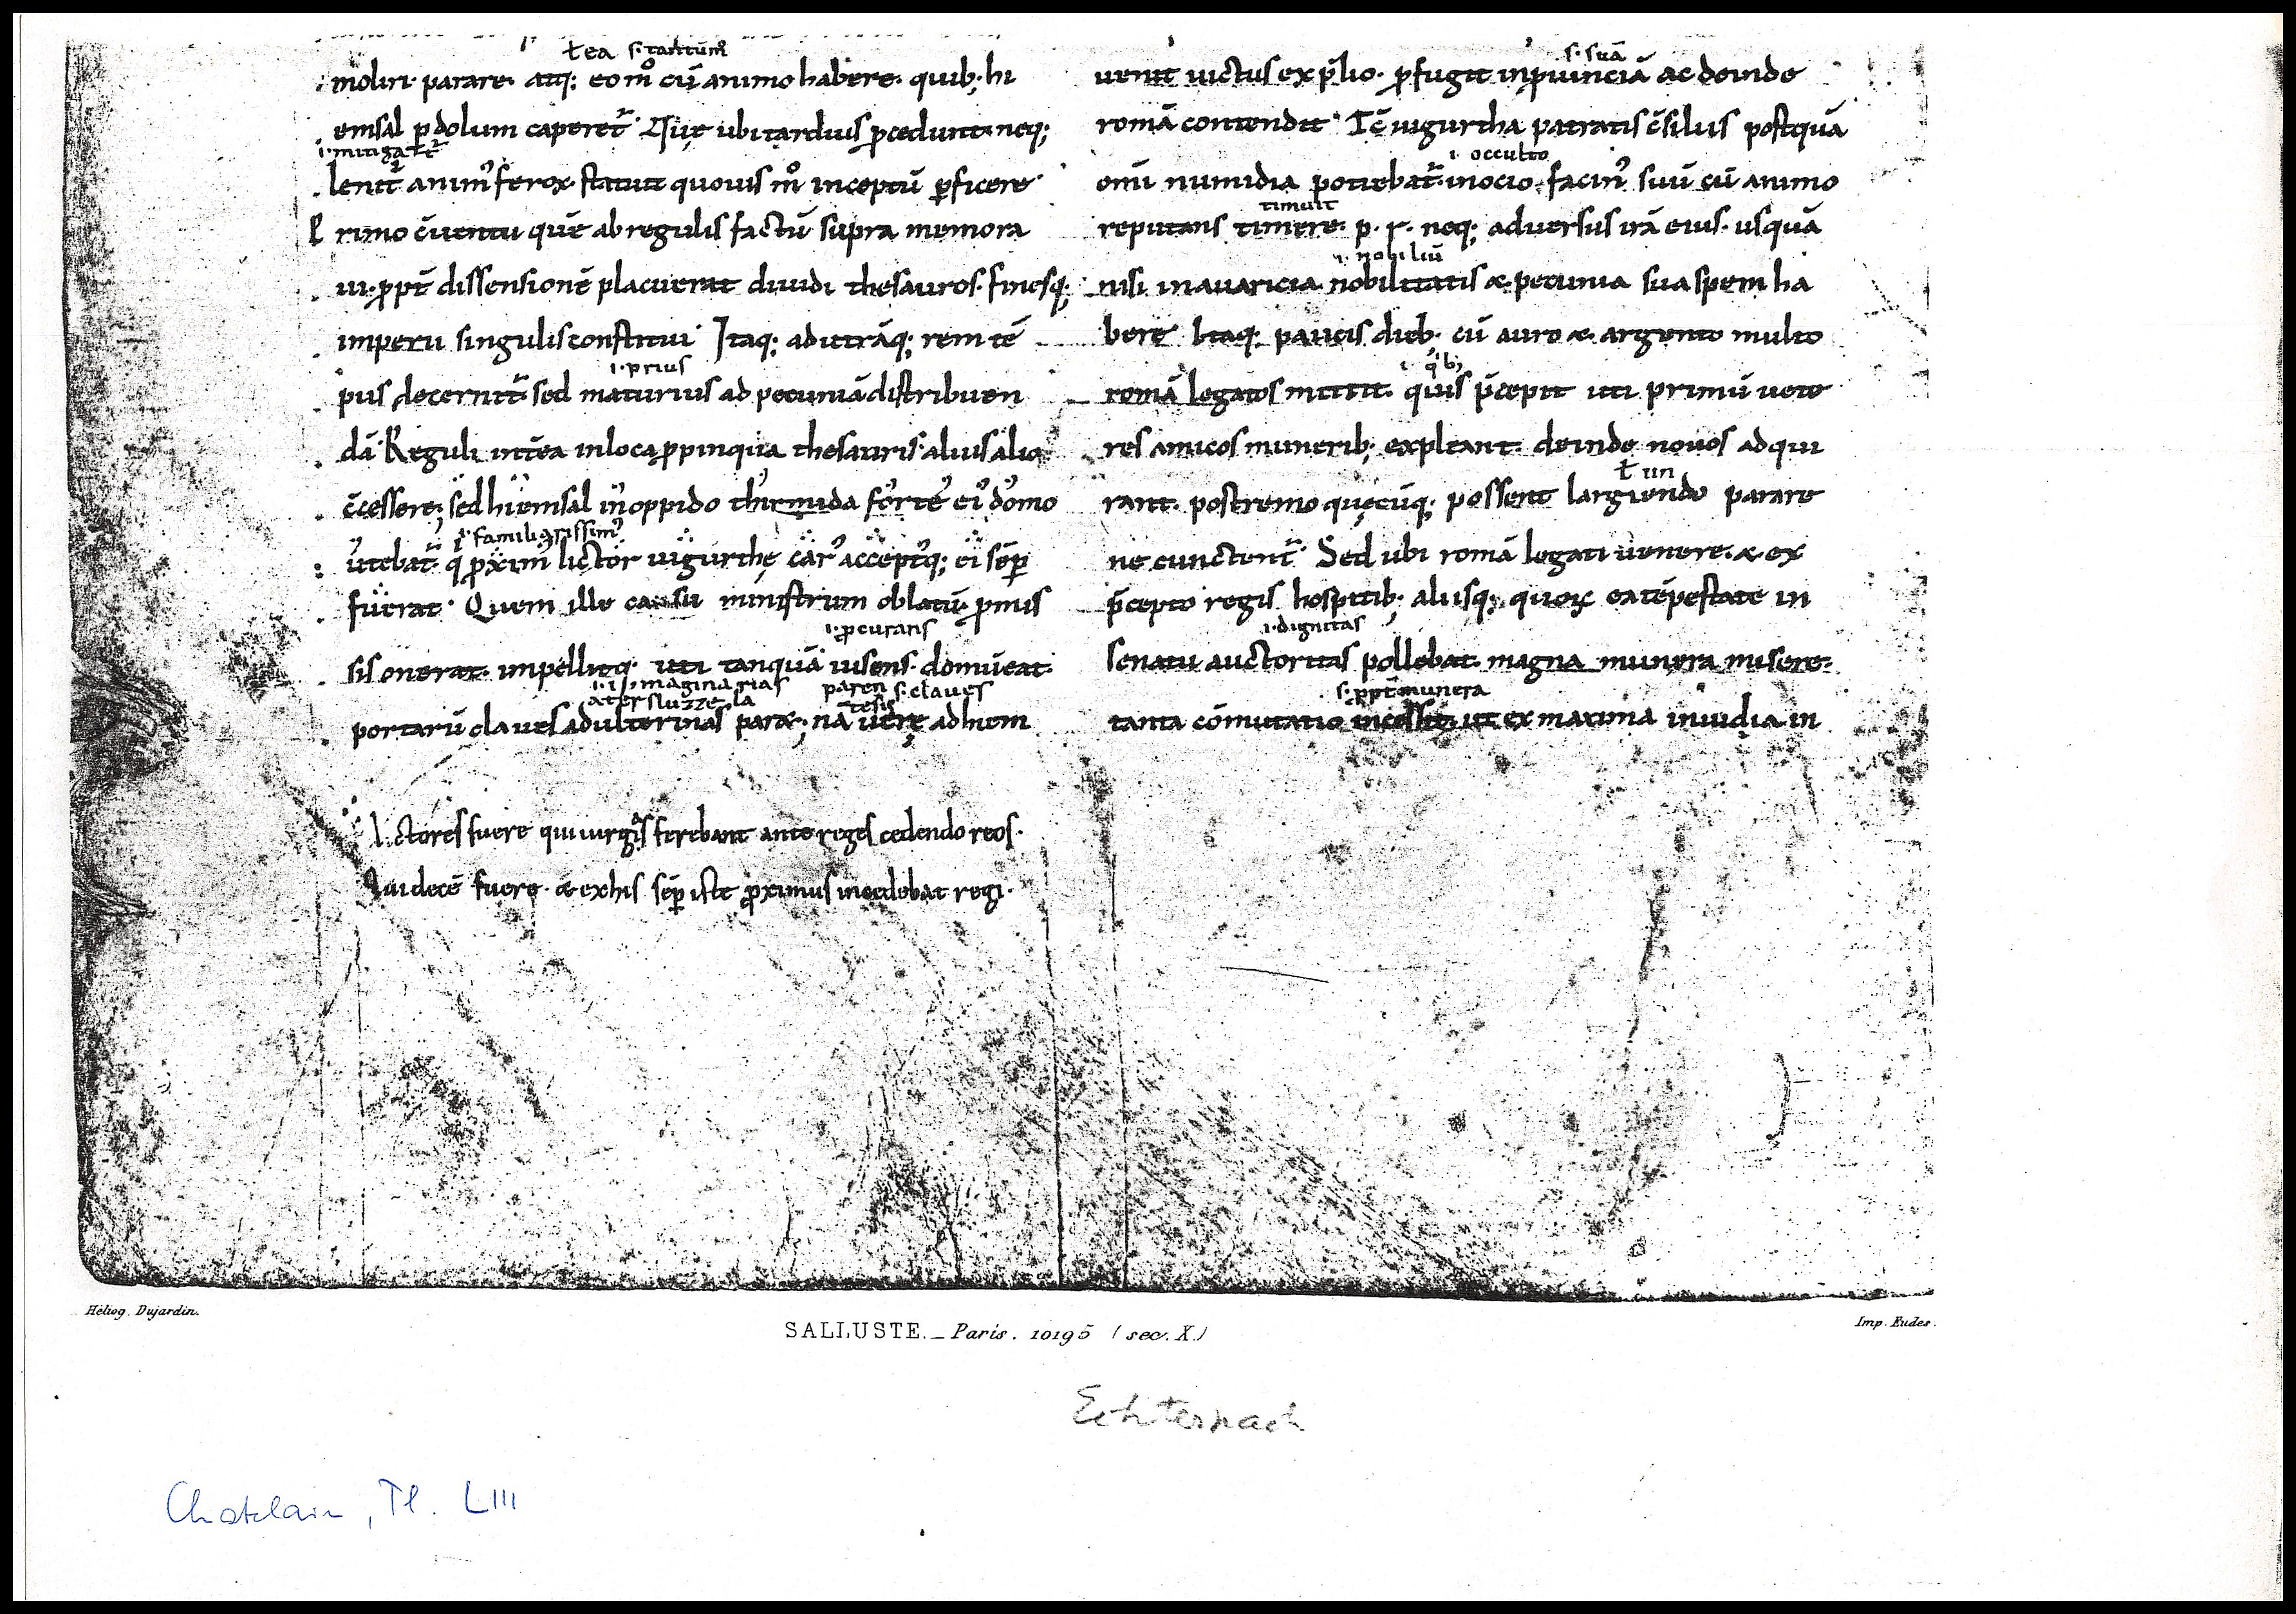 ł ea s. tantūm̊
moliri parare. atq; eo m̊ cū animo habere. quib; hi
emsal p̲ dolum caperet᷑. Quę ubi tardius p̲cedunt. neq;
.i. mitigat᷑
lenit᷑ anim᷒ ferox. statuit quouis m̊ inceptū p̲ficere
Primo c̄uentu quē ab regulis factū supra memora
ui. p̲pt̄ dissensionē placuerat diuidi thesauros. finesq;
imperii singulis constitui. Itaq; ad utrāq; rem tē
.i. prius
pus decernit᷑ sed maturius ad pecuniā distribuen
dā. Reguli int̄ea in loca p̲pinqua thesauris. alius alio
c̄cessere; sed hiemsal in oppido thirmida forte ei᷒ domo
.i. familiarissim᷒
utebat᷑. q̇ p̲xim᷒ lictor iugurthę car᷒ accept᷒q; ei sēp̲
fuerat. Quem ille casu ministrum oblatū p̲mis
.i. p̲curans
sis onerat. impellitq; uti tanquā uisens. domū eat.
.i. imaginarias paren s. claues
atersluzzela tesis
portarū claues adulterinas paret; nā uerę ad hiem
Lictores fuere qui uirgas ferebant ante reges cedendo reos.
Qui decē fuere. et ex his sēp̲ iste p̲ximus incedebat regi.
s. suā
uenit uictus ex p̄lio. p̲fugit in p̲uinciā ac deinde
romā contendit. Tc̄ iugurtha patratis c̄siliis postquā
.i. occulto
omī numidia potiebat᷑. in ocio facin᷒ suū cū animo
timuit
reputans timere. p. r. neq; aduersus irā eius. usquā
.i. nobiliū
nisi in auaricia nobilitatis et pecunia sua spem ha
bere. Itaq; paucis dieb. cū auro et argento multo
.i. qib;
romā legatos mittit. quis p̄cepit uti primū uete
res amicos munerib; expleant. deinde nouos adqui
ł un
rant. postremo quęcūq; possent largiendo parare
ne cunctent᷑. Sed ubi romā legati uenere. et ex
p̄cepto regis hospitib; aliisq; quoꝝ ea tēpestate in
.i. dignitas
senatu auctoritas pollebat. magna munera misere.
s. p̲pt̄ munera
tanta cōmutatio incessit. ut ex maxima inuidia in
Héliog. Dujardin.
Imp. Eudes.
SALLUSTE._Paris. 10195 (sec. X.)
Echternach
Chatelain, Tl. LIII